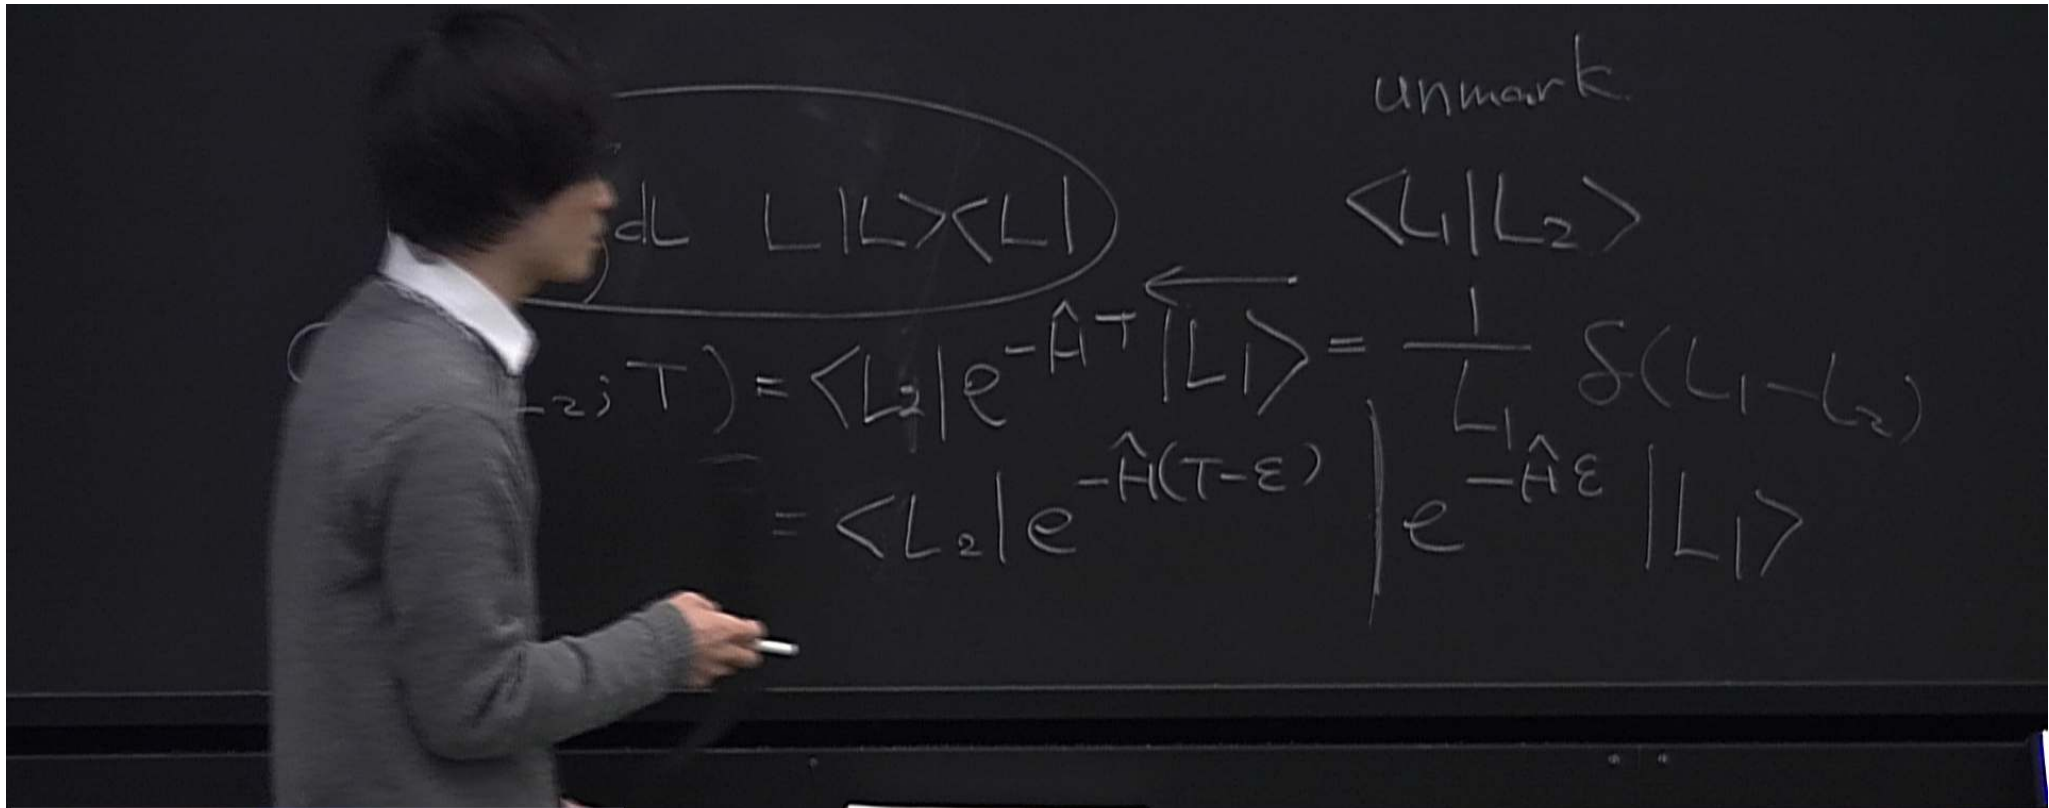 unmark
dL L|L><L|
<L₁|L₂>
₂; T) = <L₂|e^{-ĤT}|L₁> = 1/L₁ δ(L₁-L₂)
= <L₂|e^{-Ĥ(T-ε)} | e^{-Ĥε} |L₁>